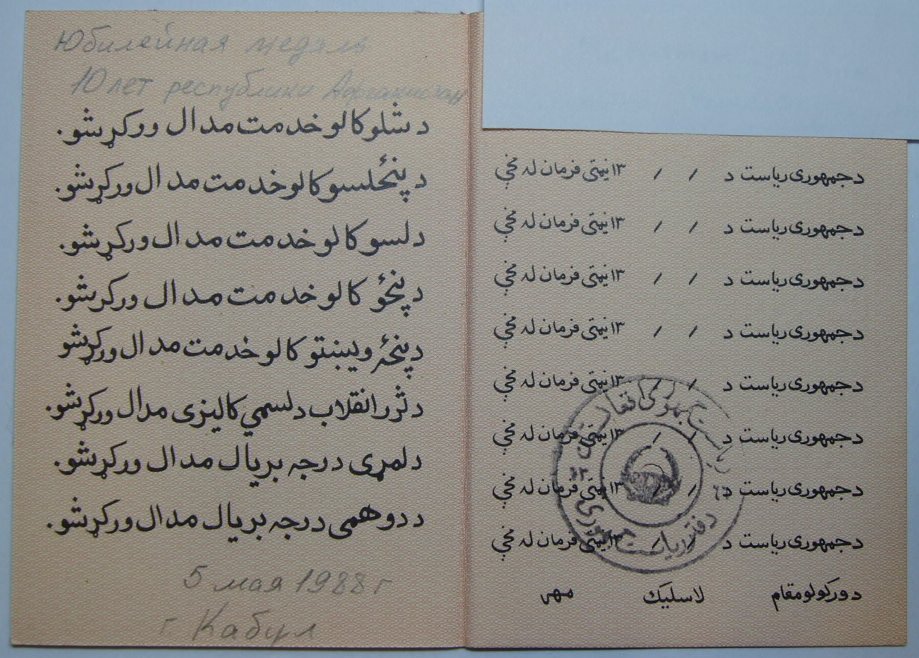 Юбилейная медаль
10 лет республики Афганистан
د شلو کالو خدمت مدال ورکړ شو.
د پنځلسو کالو خدمت مدال ورکړ شو.
د لسو کالو خدمت مدال ورکړ شو.
د پنځو کالو خدمت مدال ورکړ شو.
د پنځه ویشتو کالو خدمت مدال ورکړ شو
د ثور انقلاب د لسمې کالیزې مدال ورکړ شو.
د لمړی درجه بریال مدال ورکړ شو.
د دوهمی درجه بریال مدال ورکړ شو.
5 мая 1988 г
г. Кабул
د جمهوری ریاست د / / ۱۳ نیټې فرمان له مخې
د جمهوری ریاست د / / ۱۳ نیټې فرمان له مخې
د جمهوری ریاست د / / ۱۳ نیټې فرمان له مخې
د جمهوری ریاست د / / ۱۳ نیټې فرمان له مخې
د جمهوری ریاست د / / ۱۳ نیټې فرمان له مخې
د جمهوری ریاست د / / ۱۳ نیټې فرمان له مخې
د جمهوری ریاست د / / ۱۳ نیټې فرمان له مخې
د جمهوری ریاست د / / ۱۳ نیټې فرمان له مخې
د ورکولو مقام لاسلیک مهر
دفتر ریاست جمهوری